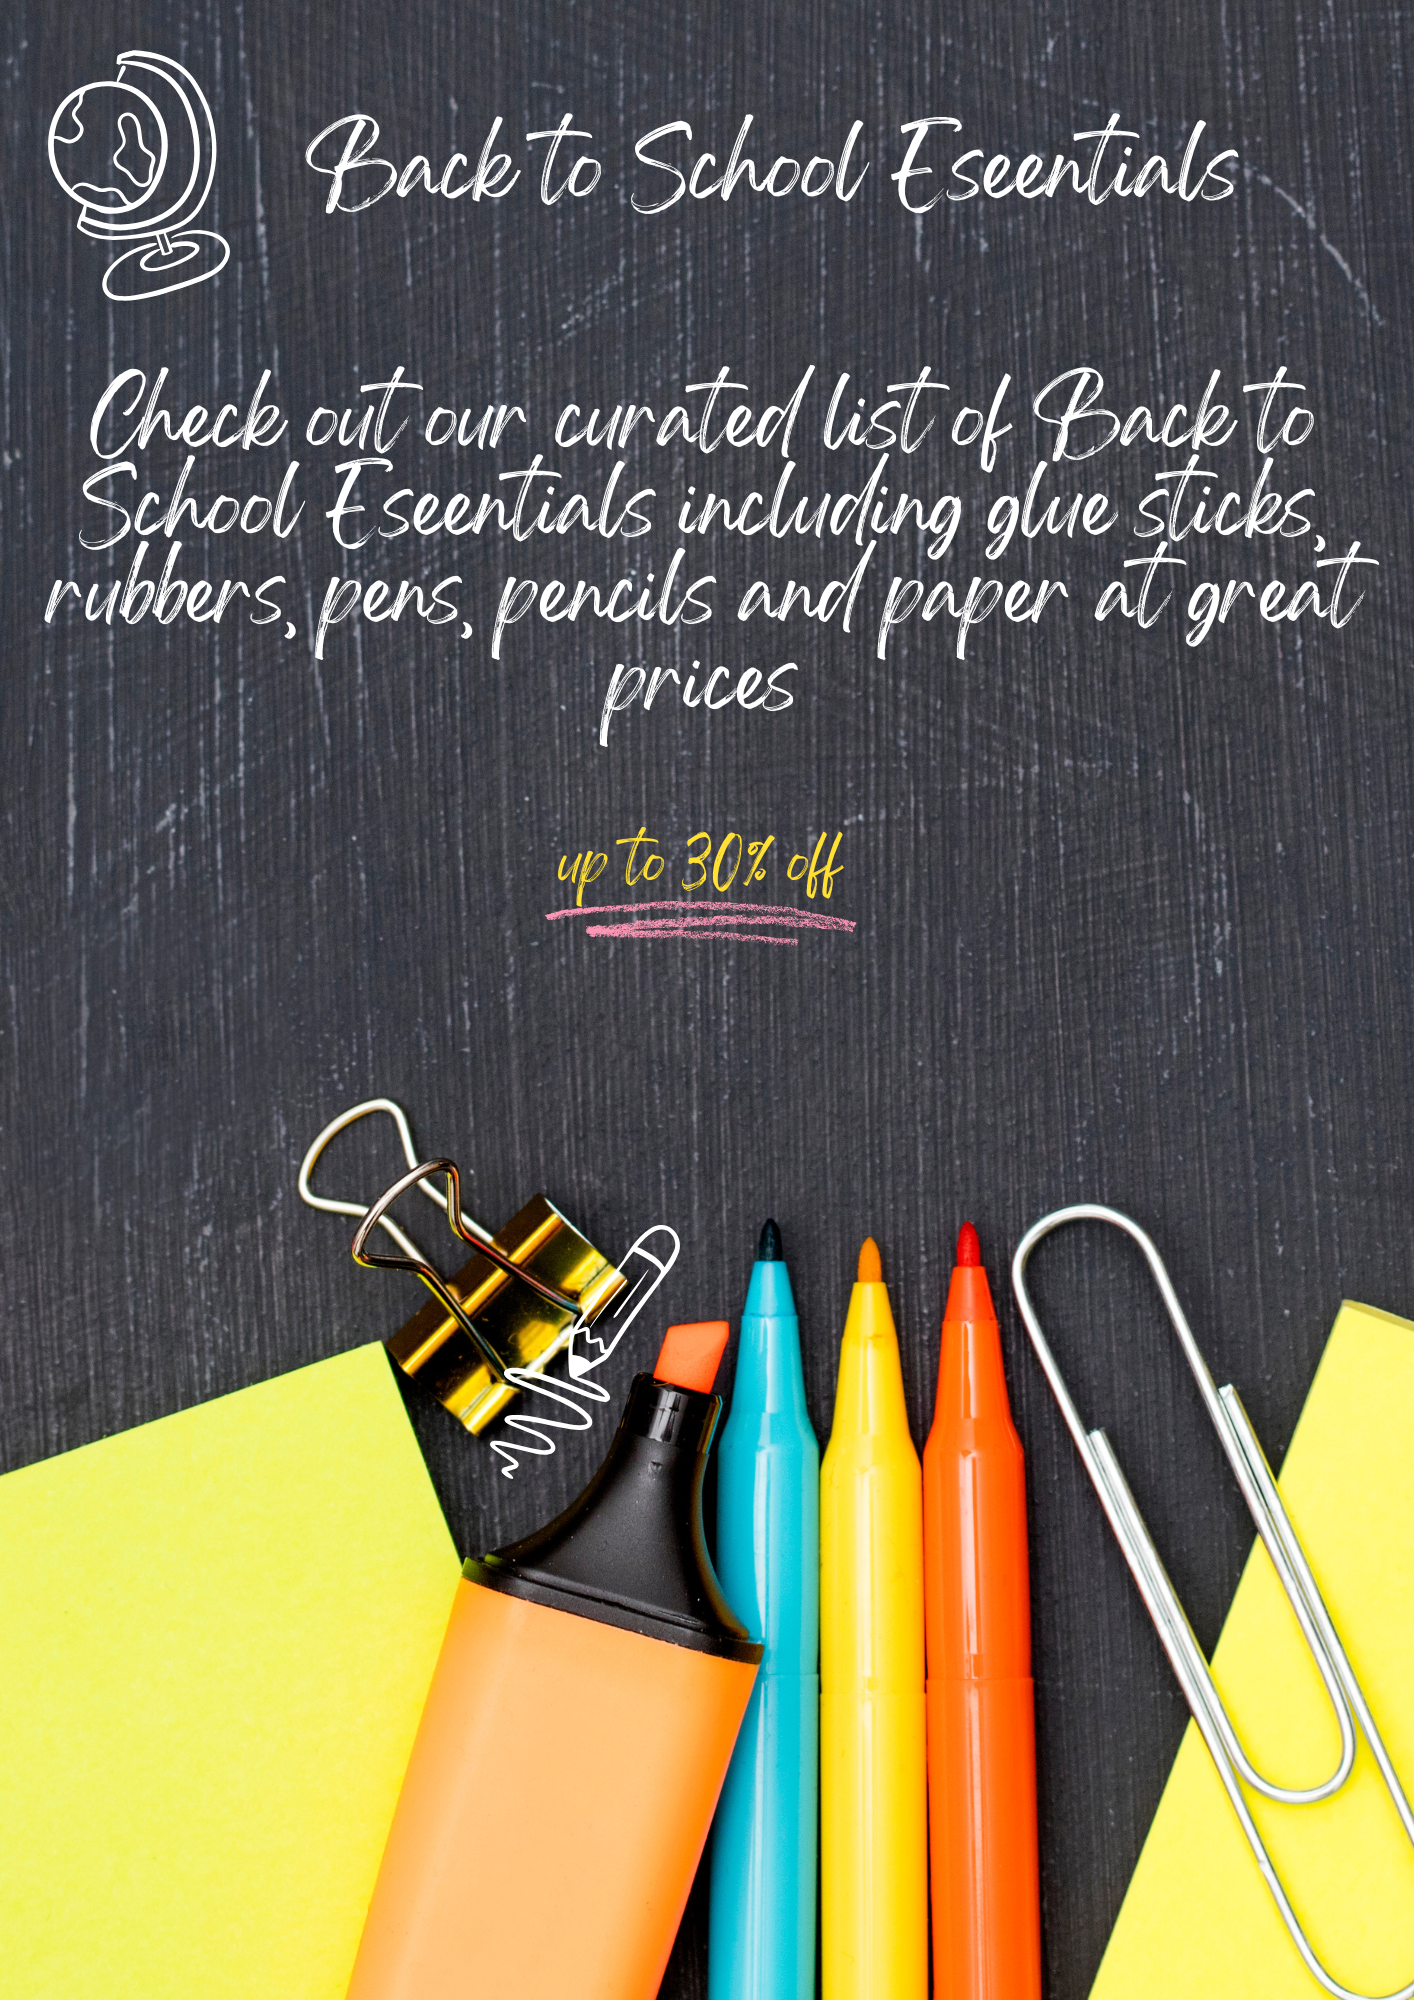 Back to School Eseentials
Check out our curated list of Back to
School Eseentials including glue sticks,
rubbers, pens, pencils and paper at great
prices
up to 30% off